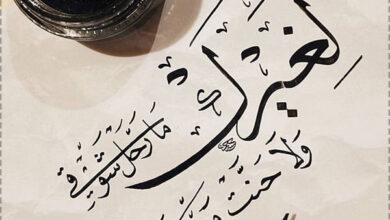 لِغيرك
مَا رَحَلْ شَوْقي
وَلَا حَنَّتْ